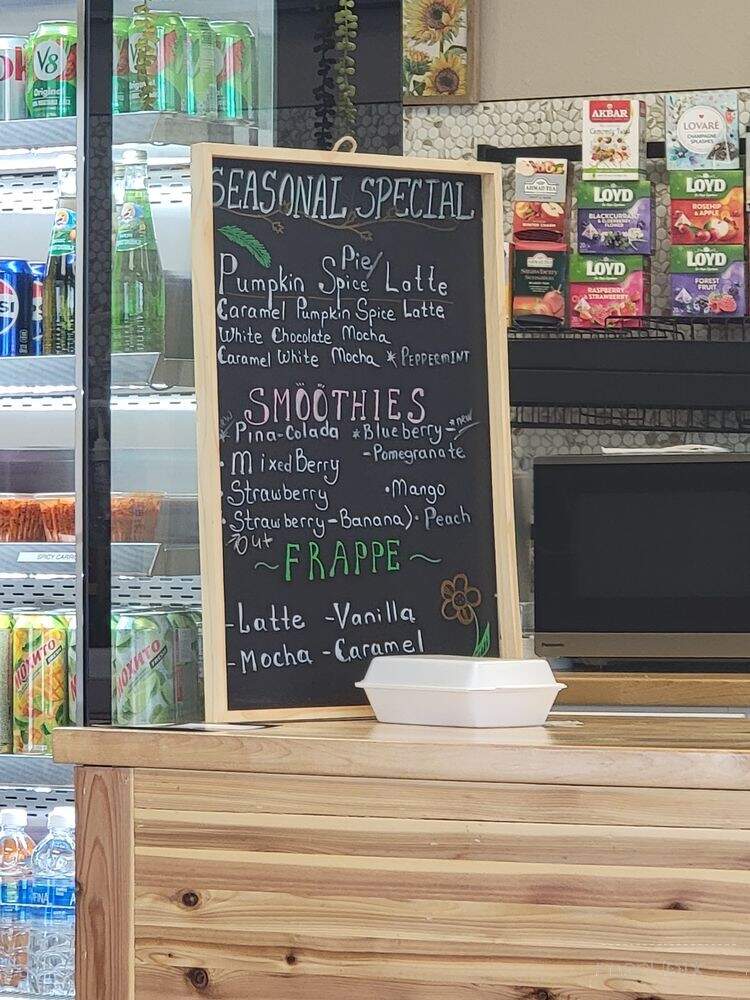 SEASONAL SPECIAL
Pie
Pumpkin Spice Latte
Caramel Pumpkin Spice Latte
White Chocolate Mocha
Caramel White Mocha * PEPPERMINT
SMÖÖTHIES
new *Pina-Colada *Blueberry- *new
· Mixed Berry -Pomegranate
· Strawberry · Mango
· Strawberry-Banana) · Peach
out
~FRAPPE~
-Latte -Vanilla
-Mocha -Caramel
V8
Original
SPICY CARRO
AKBAR
LOVARÉ
CHAMPAGNE SPLASHES
AHMAD TEA
LOYD
BLACKCURRANT & ELDERBERRY FLOWER
LOYD
ROSEHIP & APPLE
Strawberry
LOYD
RASPBERRY & STRAWBERRY
LOYD
FOREST FRUIT
Panasonic